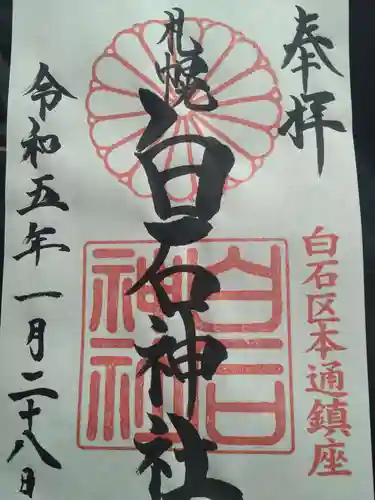 奉拝
白石区本通鎮座
札幌
白石神社
白石神社
令和五年一月二十八日